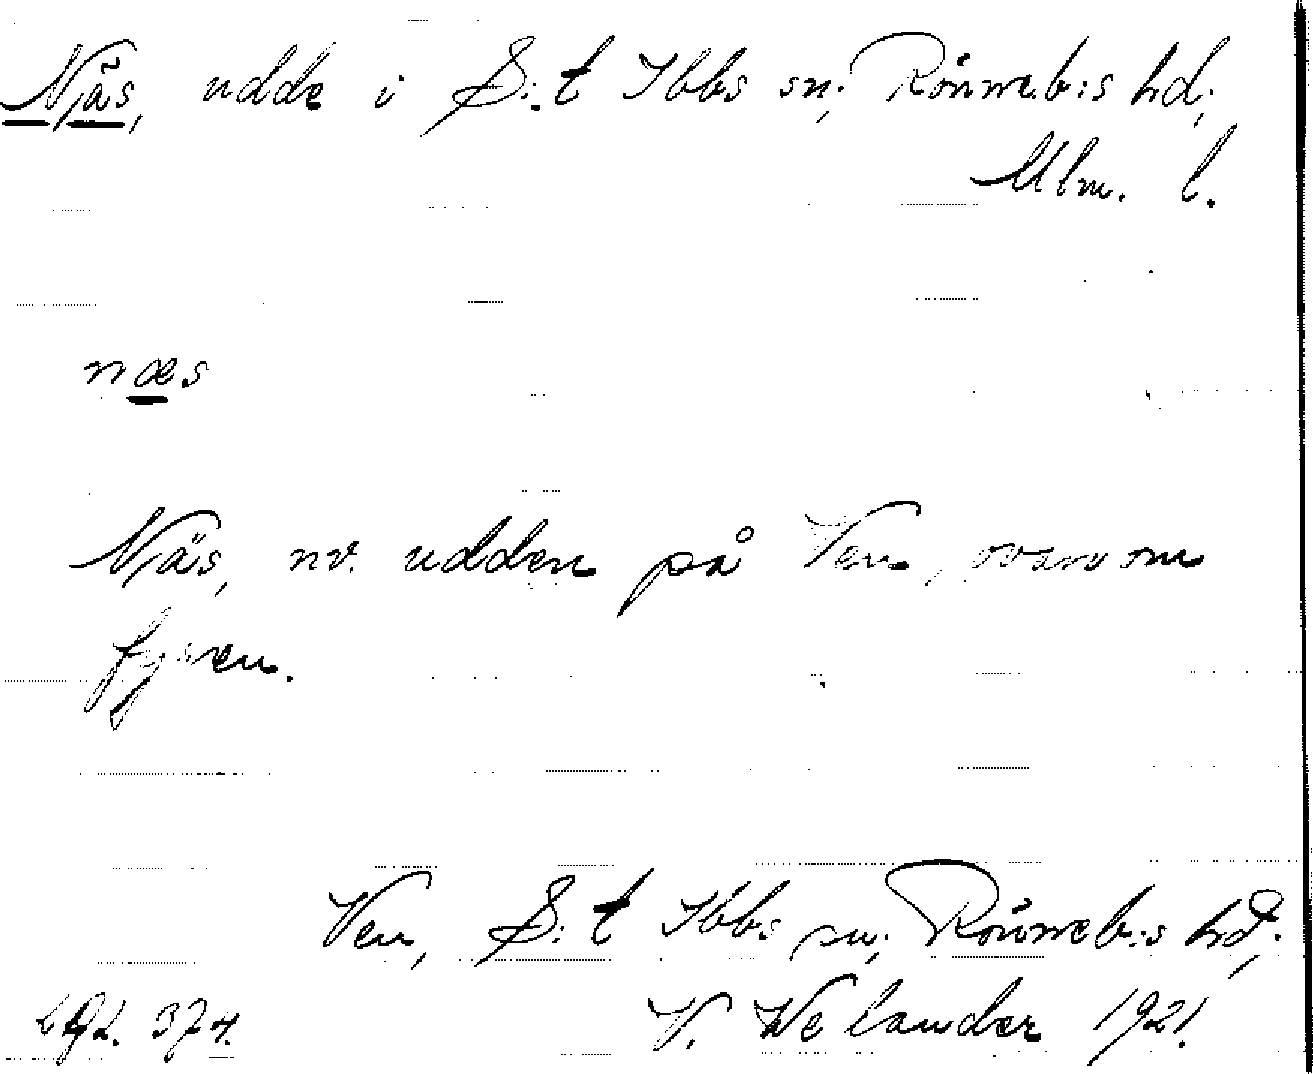 Näs, udde i S:t Ibbs sn; Rönneb:s hd;
Mlm. l.
næs
Näs, nv. udden på Ven, ovanom
fyren.
Ven, S:t Ibbs sn; Rönneb:s hd;
374. V. Welander 1921.